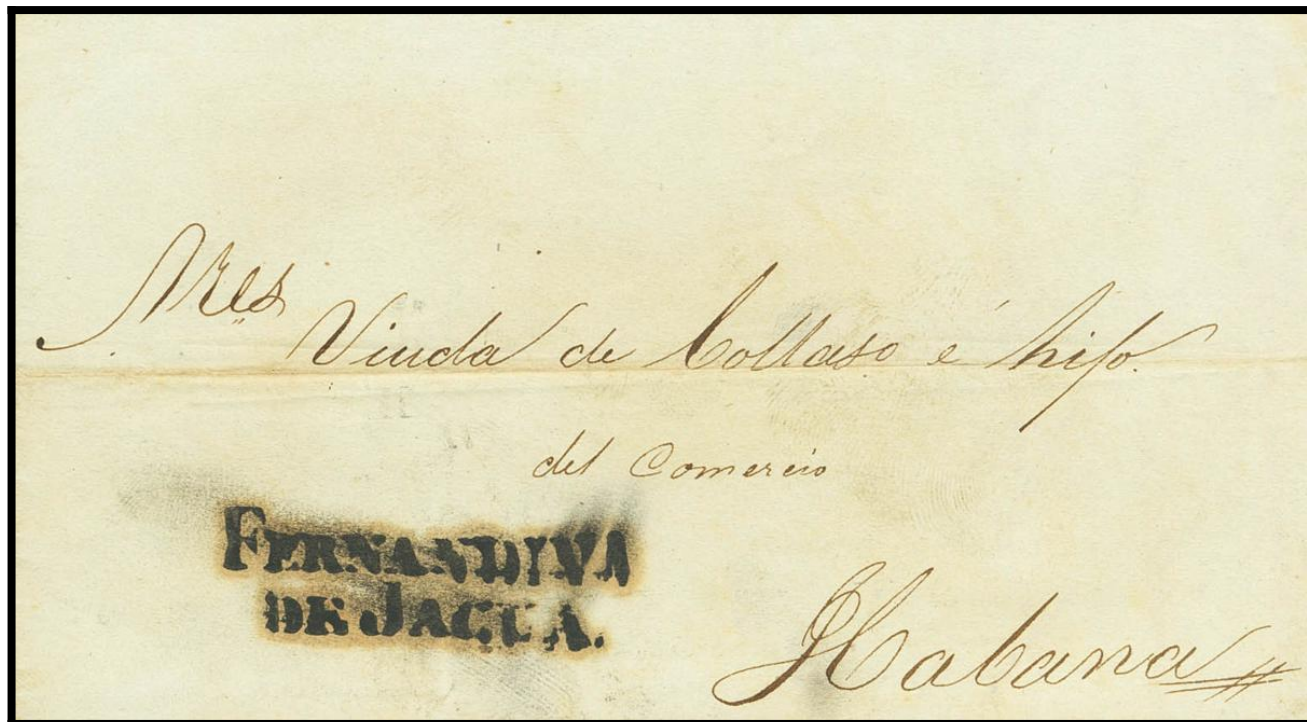 Sres
Viuda de Collaso é hijo.
del Comercio
FERNANDINA
DE JAGUA.
Habana